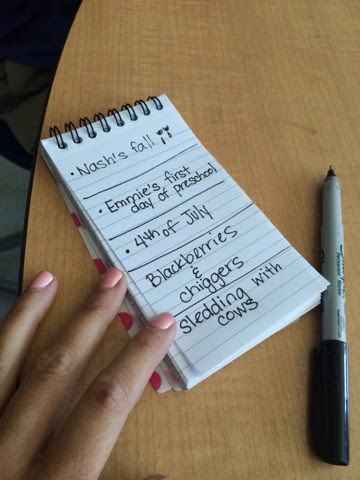 • Nash's fall !!
• Emmie's first
day of preschool
• 4th of July
Blackberries
&
chiggers
Sledding with
cows